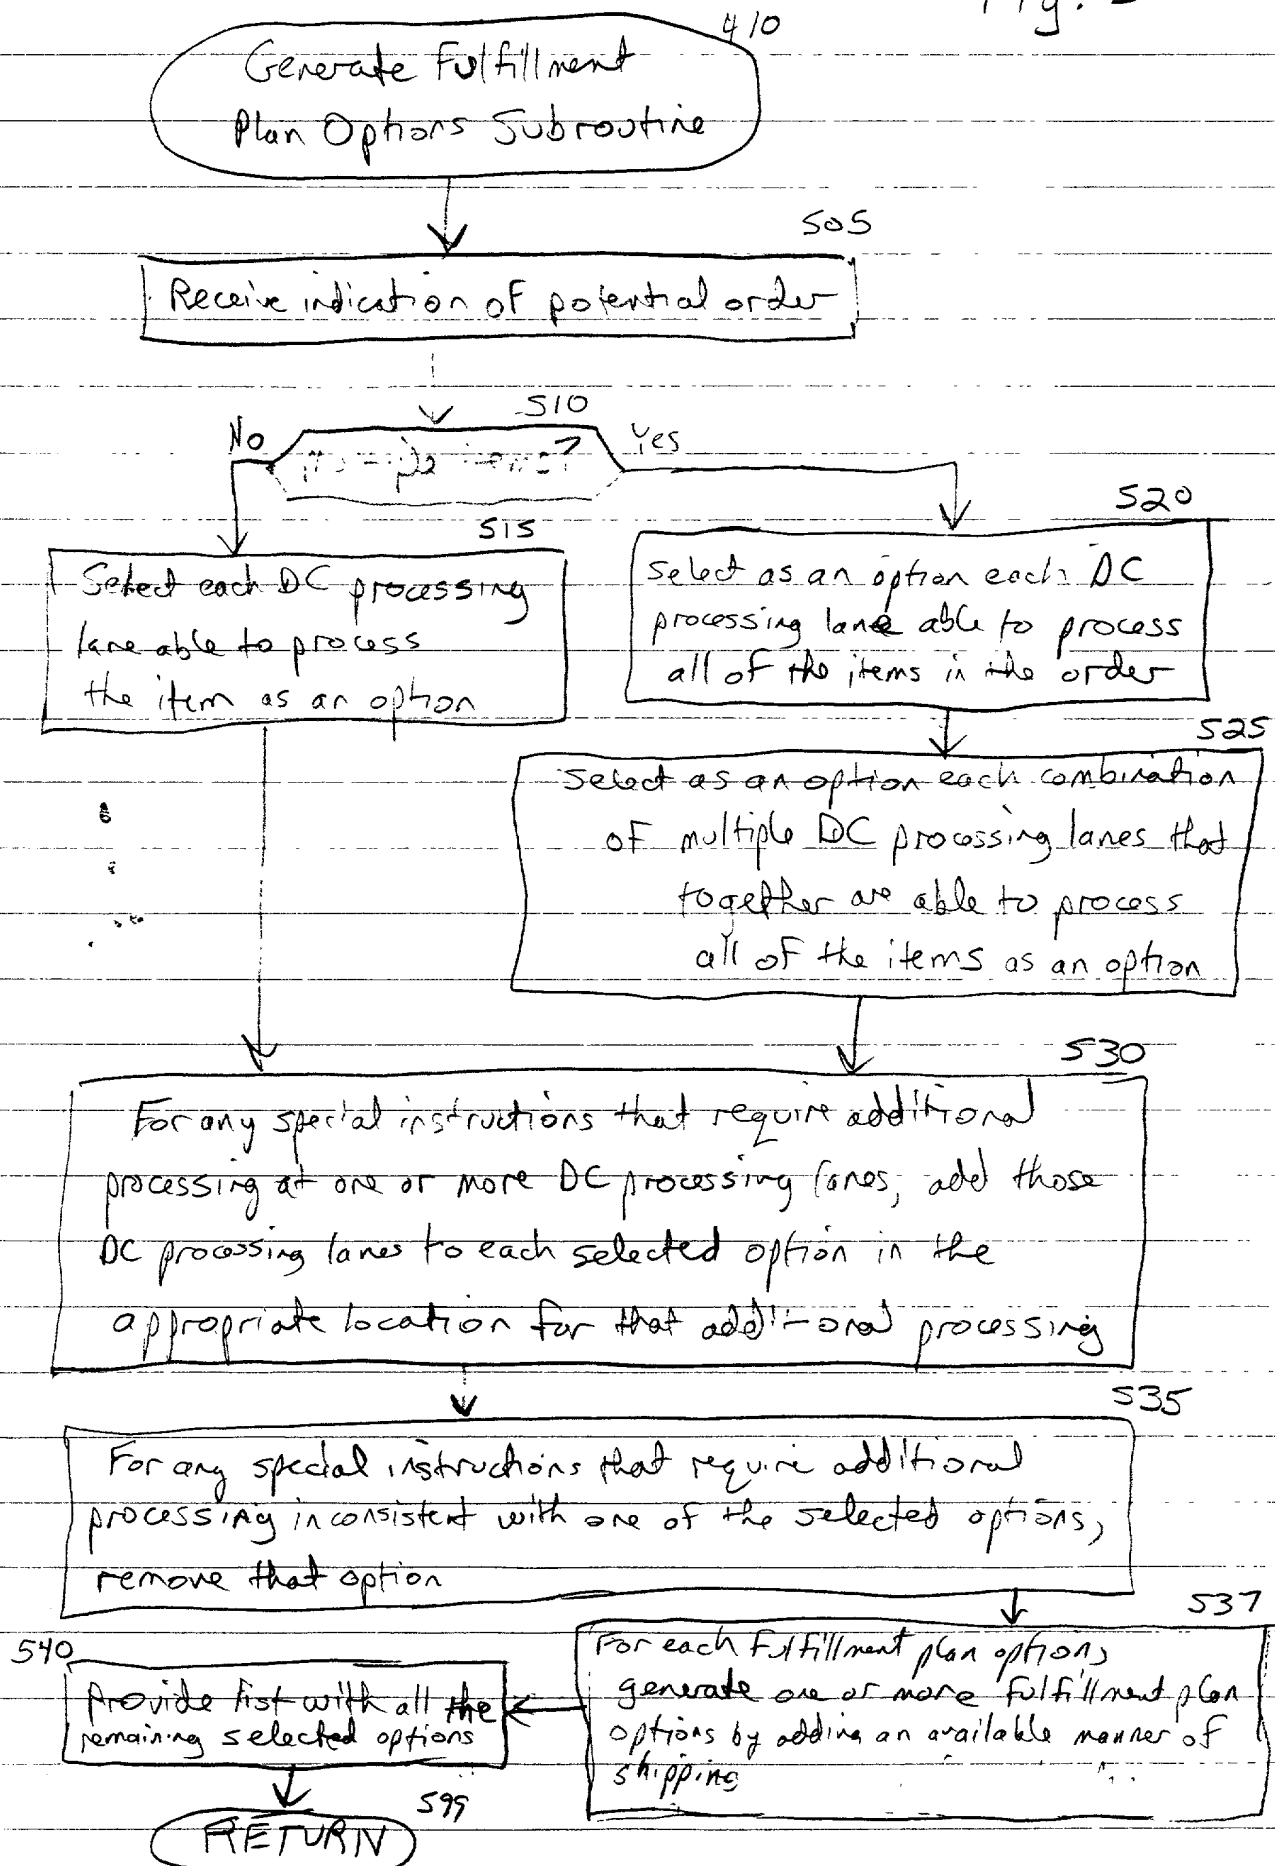 Fig.
410
Generate Fulfillment
Plan Options Subroutine
505
Receive indication of potential order
510
No
items?
Yes
515
Select each DC processing
lane able to process
the item as an option
520
Select as an option each DC
processing lane able to process
all of the items in the order
525
Select as an option each combination
of multiple DC processing lanes that
together are able to process
all of the items as an option
530
For any special instructions that require additional
processing at one or more DC processing lanes, add those
DC processing lanes to each selected option in the
appropriate location for that additional processing
535
For any special instructions that require additional
processing inconsistent with one of the selected options,
remove that option
537
For each fulfillment plan options,
generate one or more fulfillment plan
options by adding an available manner of
shipping
540
Provide list with all the
remaining selected options
599
RETURN